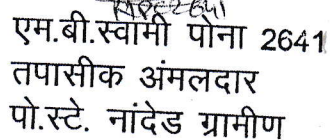 एम.बी.स्वामी पोना 2641
तपासीक अंमलदार
पो.स्टे. नांदेड ग्रामीण